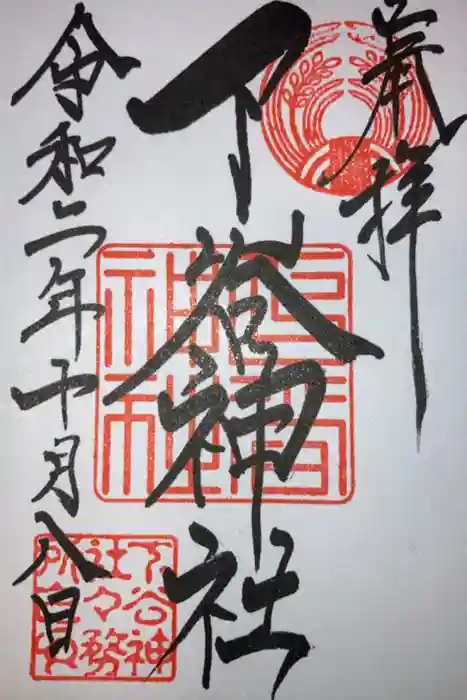 奉拝
下谷神社
令和二年十月八日
下谷神社
下谷神社々務所